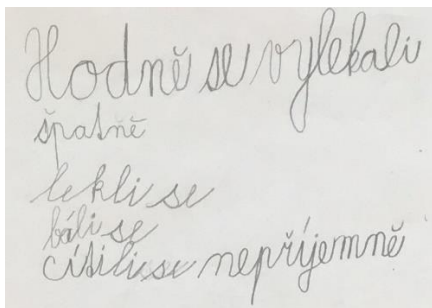 Hodně se vylekali
špatně
lekli se
báli se
cítili se nepříjemně